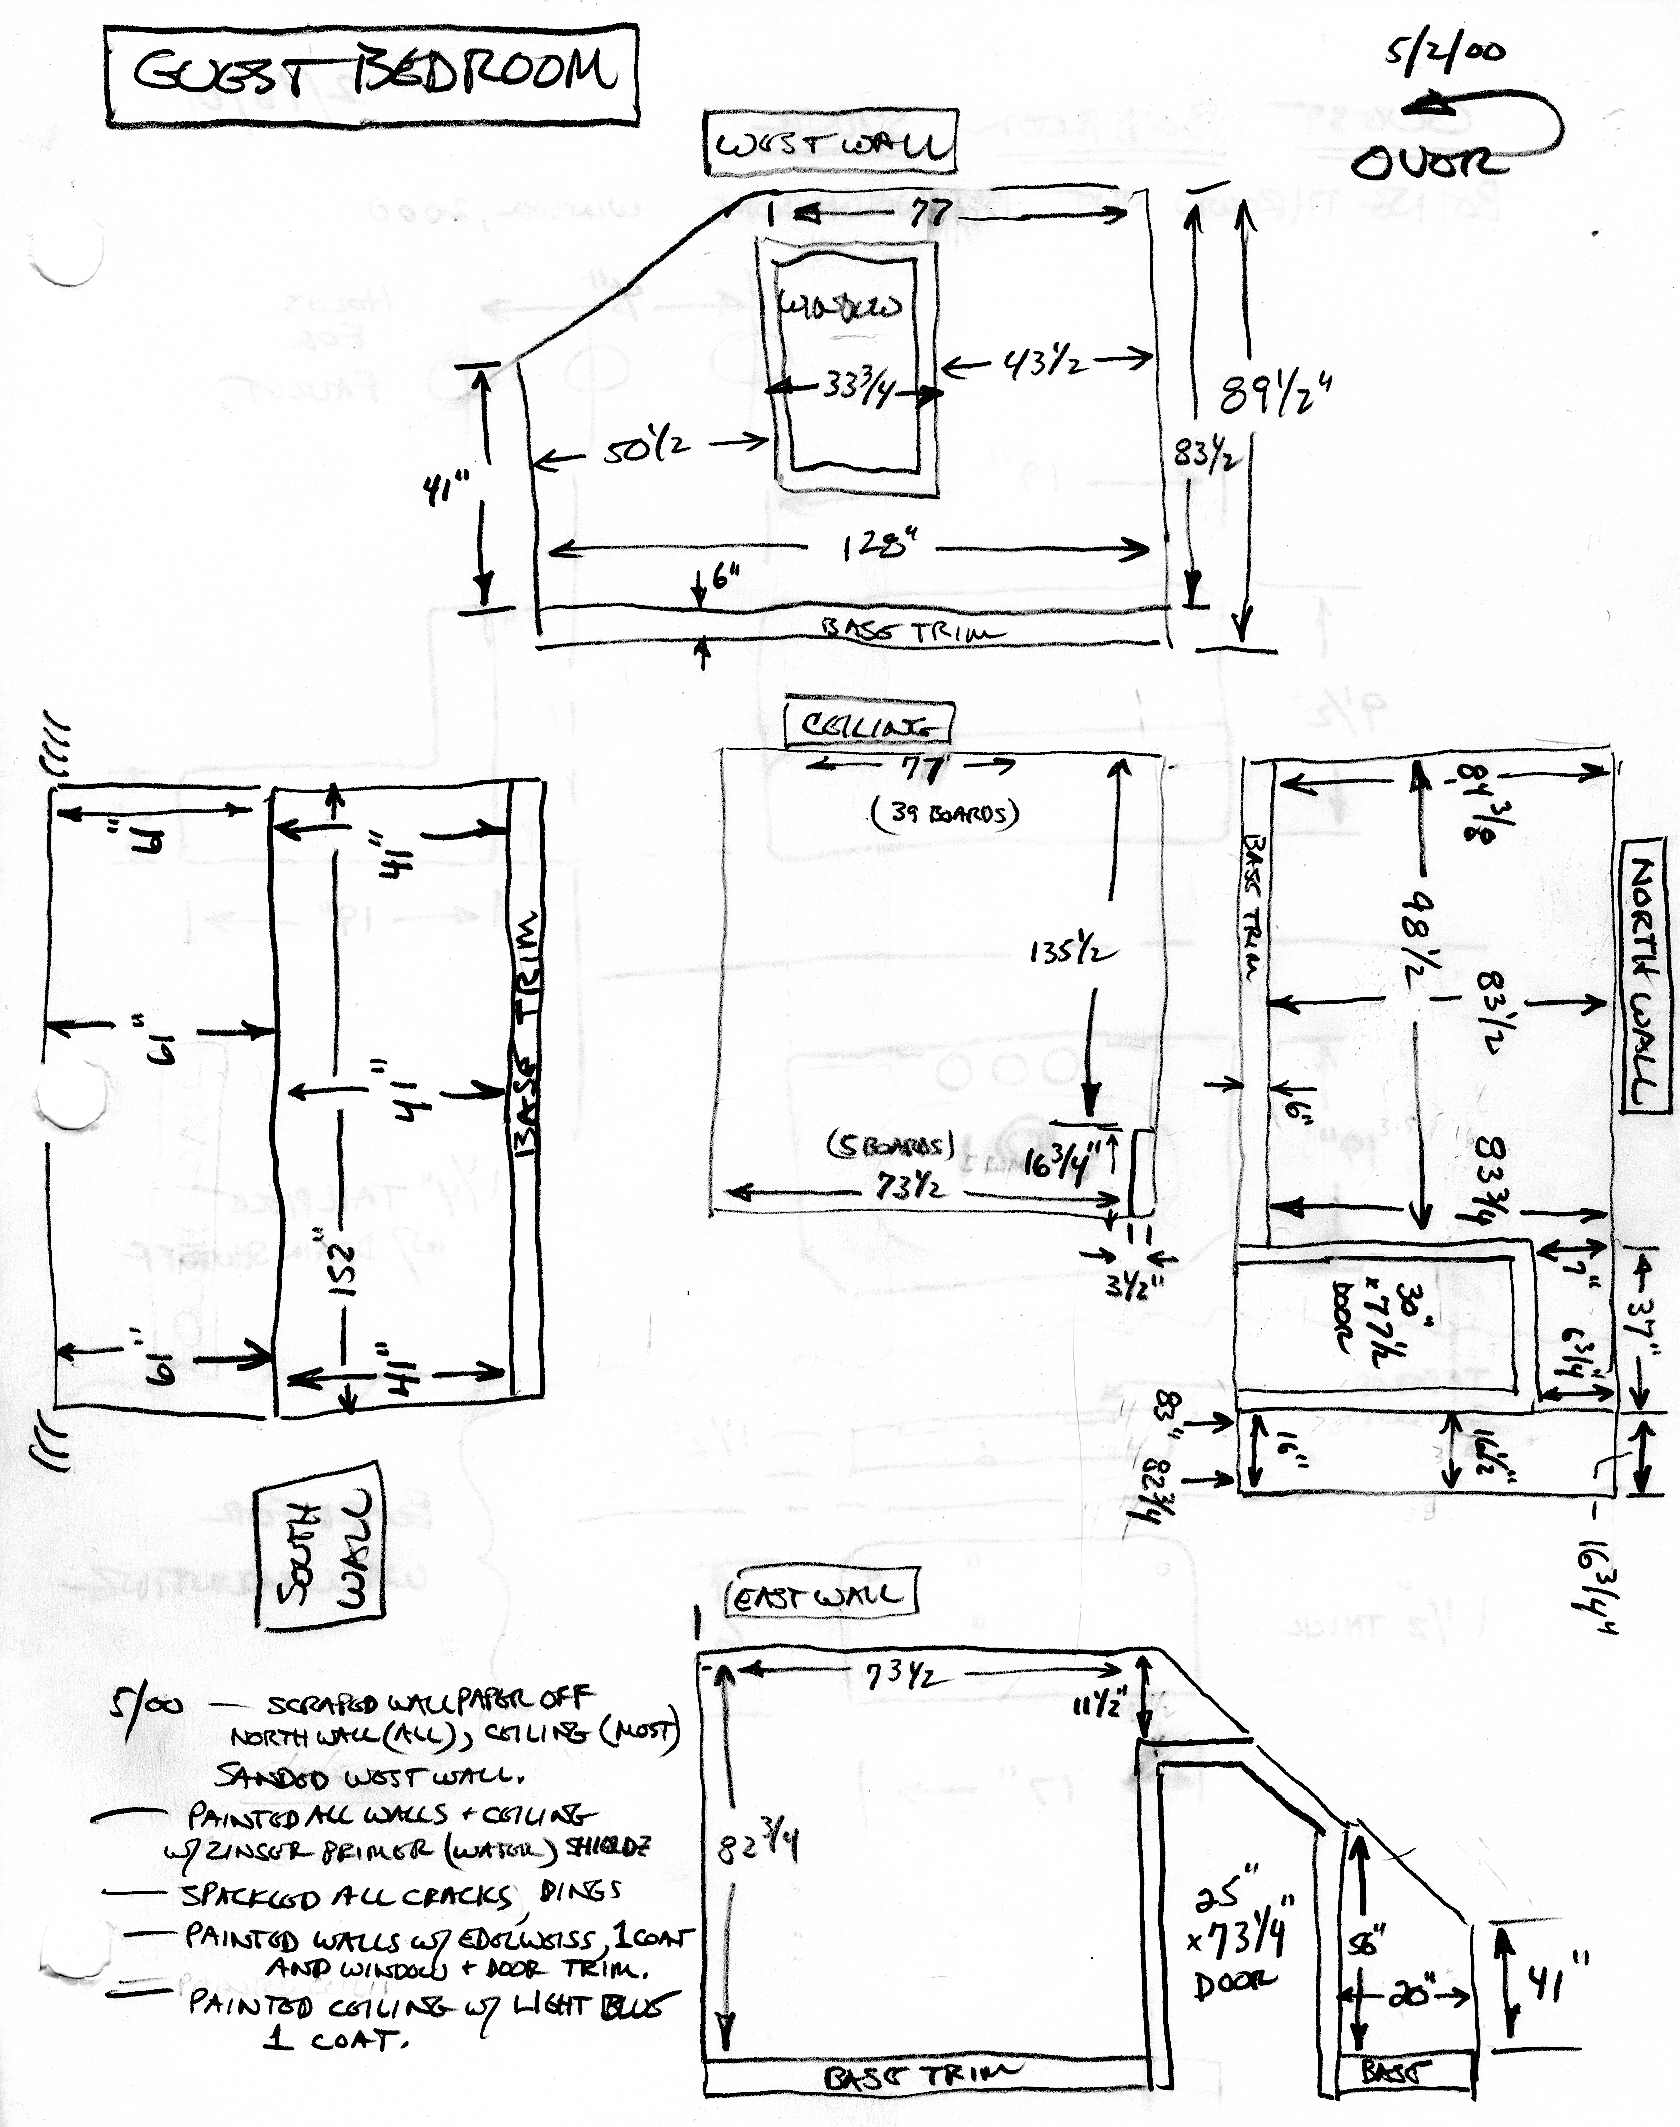 GUEST BEDROOM
5/2/00
OVER
WEST WALL
77
WINDOW
33 3/4
43 1/2
50 1/2
41"
83 1/2
89 1/2"
128"
6"
BASE TRIM
CEILING
77
(39 BOARDS)
135 1/2
(5 BOARDS)
16 3/4"
73 1/2
3 1/2"
61"
41"
61"
41"
61"
41"
152"
BASE TRIM
SOUTH
WALL
NORTH WALL
84 3/8
98 1/2
83 1/2
83 3/4
BASE TRIM
6"
7"
37"
6 3/4"
30"
x 77 1/2
DOOR
83"
82 3/4
16"
16 1/2"
16 3/4"
EAST WALL
73 1/2
11 1/2"
82 3/4
25"
x 73 1/4"
DOOR
56"
20"
41"
BASE TRIM
BASE
5/00 — SCRAPED WALLPAPER OFF
NORTH WALL (ALL), CEILING (MOST)
SANDED WEST WALL.
— PAINTED ALL WALLS + CEILING
W/ ZINSER PRIMER (WATER) SHIELDZ
— SPACKLED ALL CRACKS, DINGS
— PAINTED WALLS W/ EDELWEISS, 1 COAT
AND WINDOW + DOOR TRIM.
— PAINTED CEILING W/ LIGHT BLUE
1 COAT.